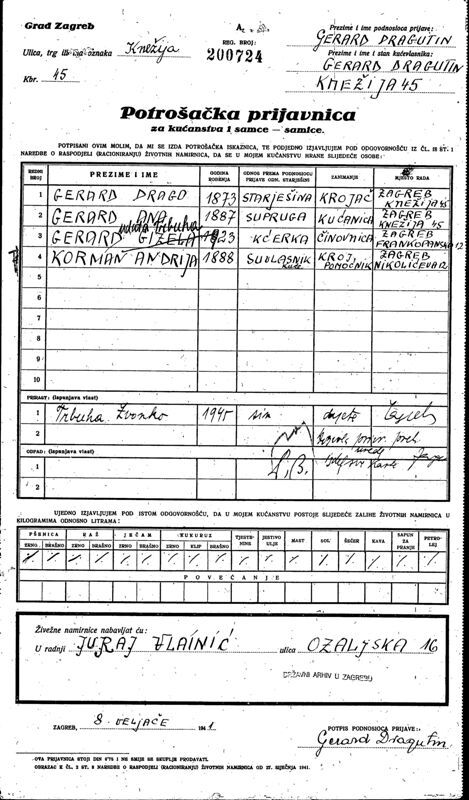 Grad Zagreb
Ulica, trg ili ina oznaka Knežija
Kbr. 45
REG. BROJ:
200724
Prezime i ime podnosioca prijave:
GERARD DRAGUTIN
Prezime i ime i stan kućevlasnika:
GERARD DRAGUTIN
KNEŽIJA 45
Potrošačka prijavnica
za kućanstva i samce — samice.
POTPISANI OVIM MOLIM, DA MI SE IZDA POTROŠAČKA ISKAZNICA, TE PODJEDNO IZJAVLJUJEM POD ODGOVORNOŠĆU IZ ČL. 18 ST. 1
NAREDBE O RASPODJELI (RACIONIRANJU) ŽIVOTNIH NAMIRNICA, DA SE U MOJEM KUĆANSTVU HRANE SLIJEDEĆE OSOBE:
REDNI BROJ PREZIME I IME GODINA ROĐENJA ODNOS PREMA PODNOSIOCU PRIJAVE ODN. STARJEŠINI ZANIMANJE MJESTO RADA
1 GERARD DRAGO 1873 STARJEŠINA KROJAČ ZAGREB KNEŽIJA 45
2 GERARD ANA 1887 SUPRUGA KUĆANICA ZAGREB KNEŽIJA 45
udata Trbuha
3 GERARD GIZELA 1923 KĆERKA ČINOVNICA ZAGREB FRANKOPANSKA 12
4 KORMAN ANDRIJA 1888 SUVLASNIK KUĆE KROJ. POMOĆNIK ZAGREB NIKOLIĆEVA 12
5
6
7
8
9
10
PRIRAST: (ispunjava vlast)
1 Trbuha Zvonko 1945 sin dijete Zagreb
2
OTPAD: (ispunjava vlast)
1
2
UJEDNO IZJAVLJUJEM POD ISTOM ODGOVORNOŠĆU, DA U MOJEM KUĆANSTVU POSTOJE SLIJEDEĆE ZALIHE ŽIVOTNIH NAMIRNICA U
KILOGRAMIMA ODNOSNO LITRAMA:
PŠENICA RAŽ JEČAM KUKURUZ TJESTENINE JESTIVO ULJE MAST SOL ŠEĆER KAVA SAPUN ZA PRANJE PETROLEJ
ZRNO BRAŠNO ZRNO BRAŠNO ZRNO BRAŠNO ZRNO KLIP BRAŠNO
POVEĆANJE
Živežne namirnice nabavljat ću:
U radnji JURAJ VLAINIĆ ulica OZALJSKA 16
DRŽAVNI ARHIV U ZAGREBU
ZAGREB, 8 VELJAČE 1941
POTPIS PODNOSIOCA PRIJAVE:
Gerard Dragutin
OVA PRIJAVNICA STOJI DIN 0'75 I NE SMIJE SE SKUPLJE PRODAVATI.
OBRAZAC K ČL. 2 ST. 2 NAREDBE O RASPODJELI (RACIONIRANJU) ŽIVOTNIH NAMIRNICA OD 27. SIJEČNJA 1941.